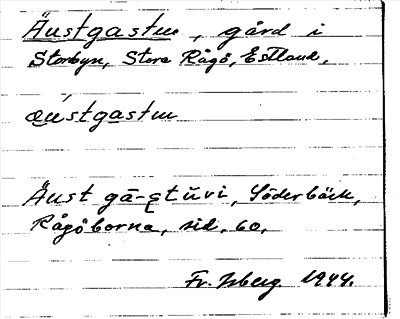 Äustgastur, gård i
Storbyn, Stora Rågö, Estland.
äustgastur
Äust gā-stŭvi, Söderbäck,
Rågöborna, sid. 60.
Fr. Isberg 1944.